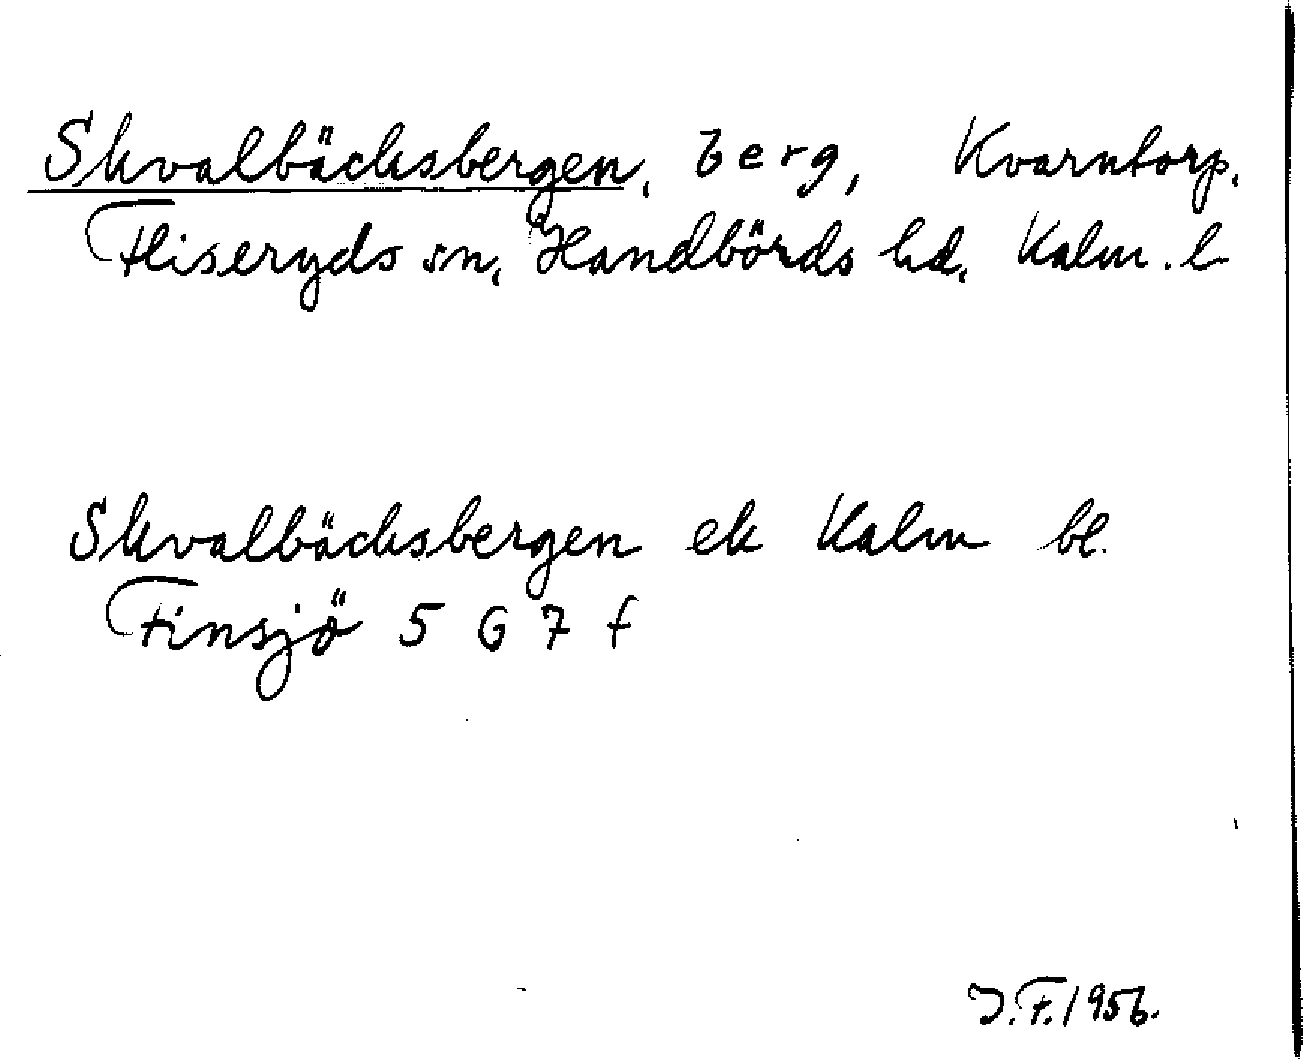 Skvalbäcksbergen, berg, Kvarntorp,
Fliseryds sn, Handbörds hd, Kalm. l
Skvalbäcksbergen ek Kalm bl.
Finsjö 5 G 7 f
J.F. 1956.